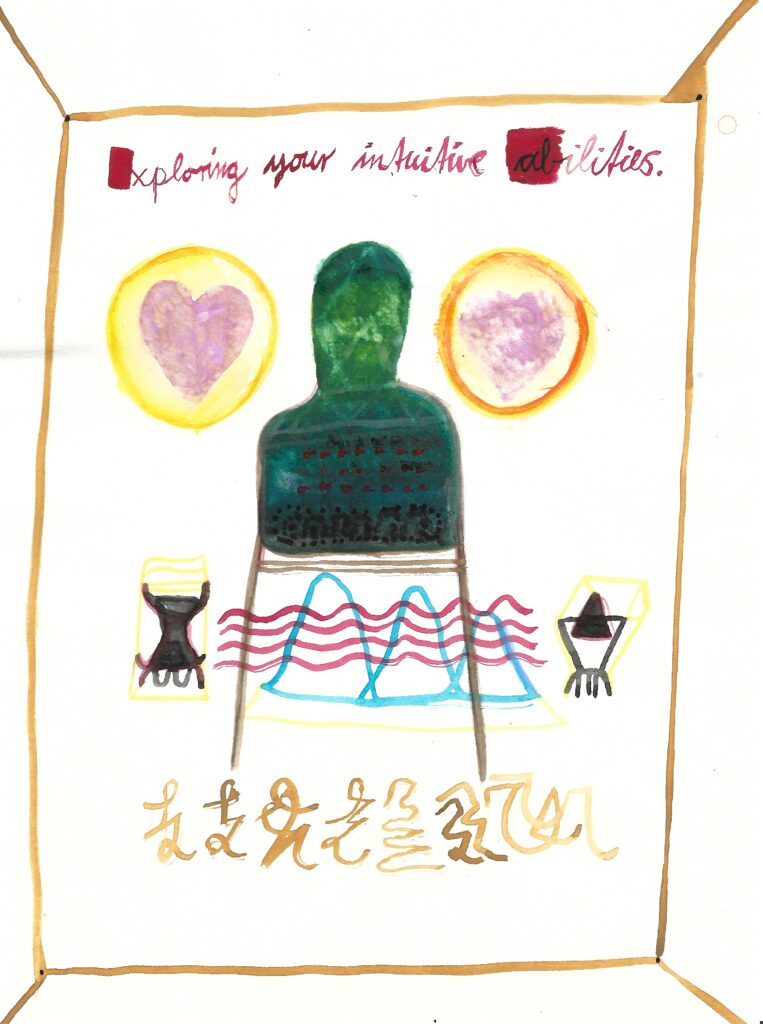 Exploring your intuitive abilities.